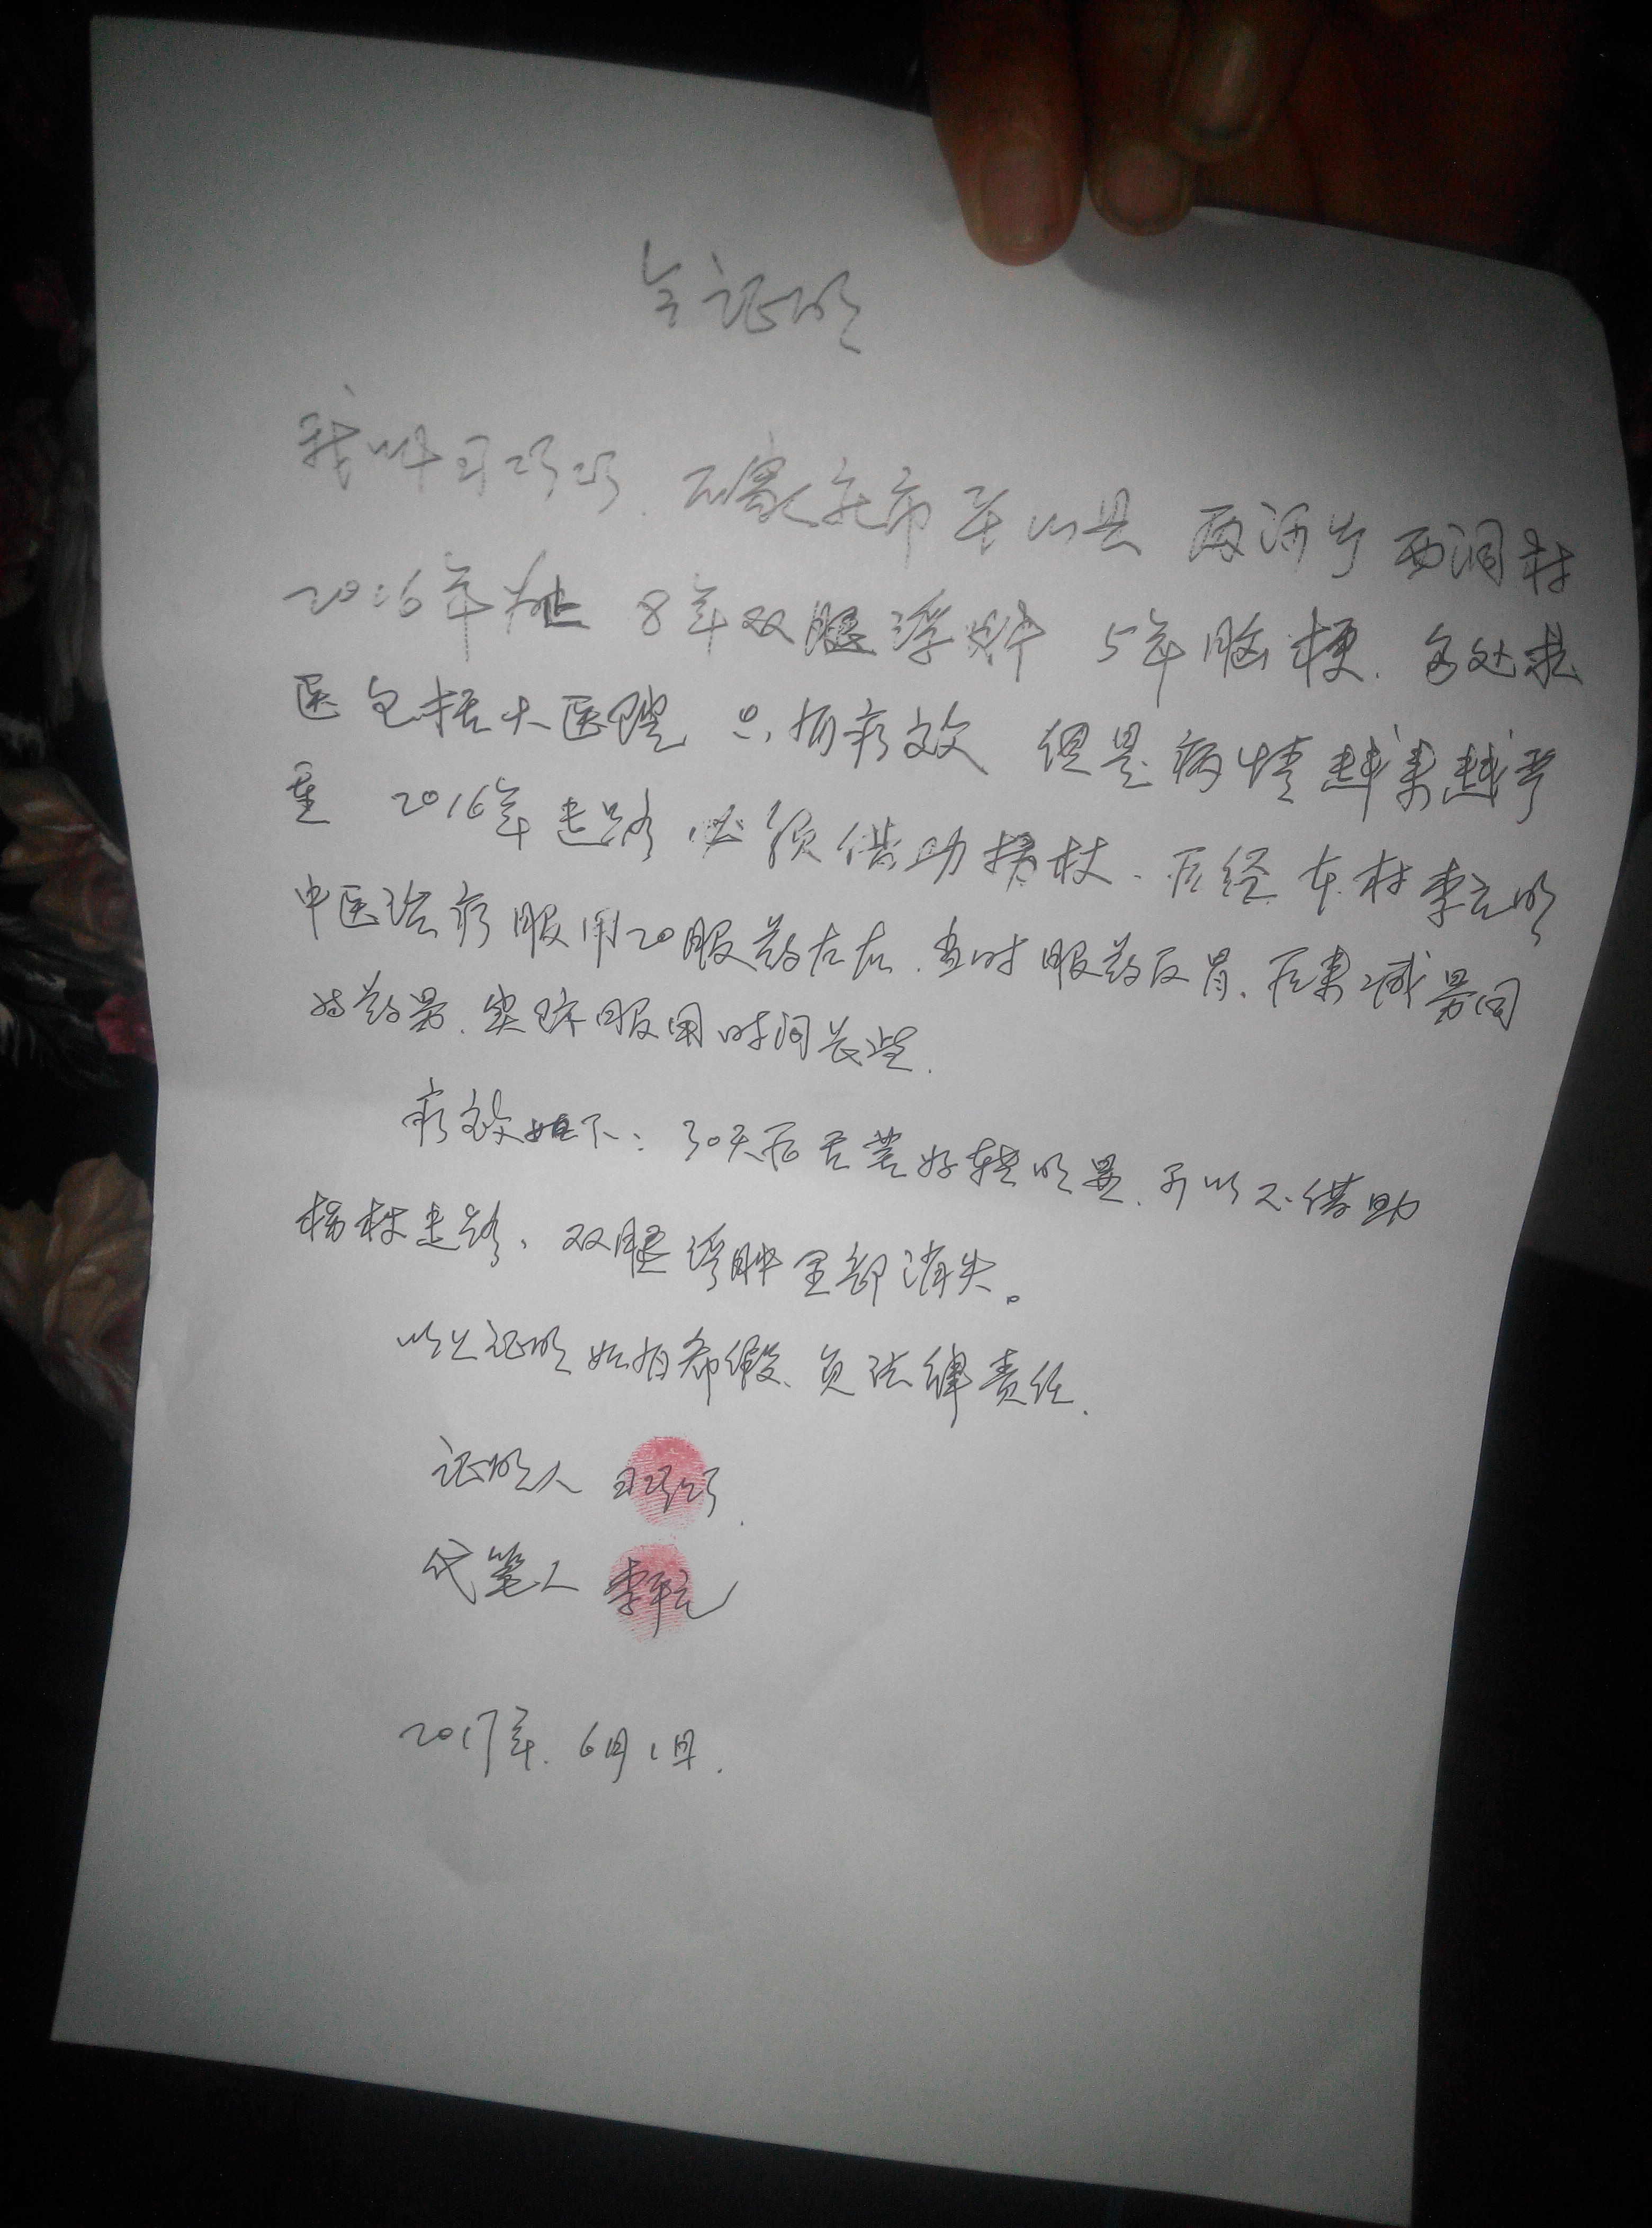 证明
我叫习巧巧. 石家庄市平山县 两河乡 西洞村
2016年为止 8年双腿浮肿 5年脑梗. 多处求
医包括大医院 只有疗效 但是病情越来越严
重 2016年走路必须借助拐杖. 后经本村李云明
中医治疗服用20服药左右. 当时服药反胃. 后来减量
药量. 实际服用时间长些.
疗效如下: 30天后舌苔好转明显. 可以不借助
拐杖走路. 双腿浮肿全部消失。
以上证明如有虚假. 负法律责任.
证明人 习巧巧.
代笔人 李
2017年. 6月1日.